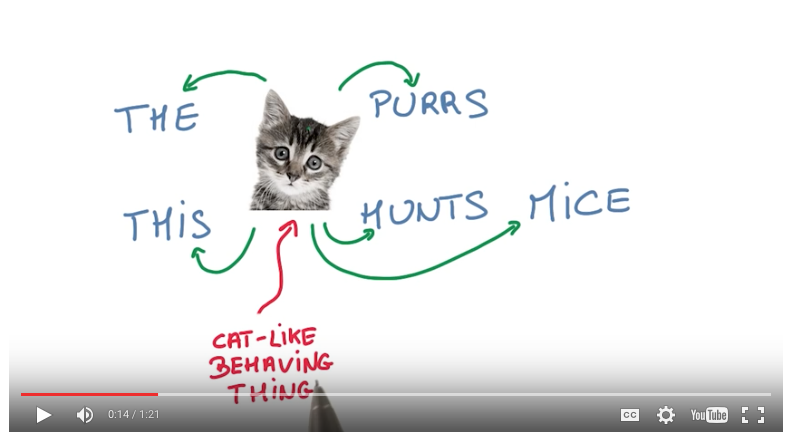 THE PURRS
THIS HUNTS MICE
CAT-LIKE
BEHAVING
THING
0:14 / 1:21
CC
YouTube